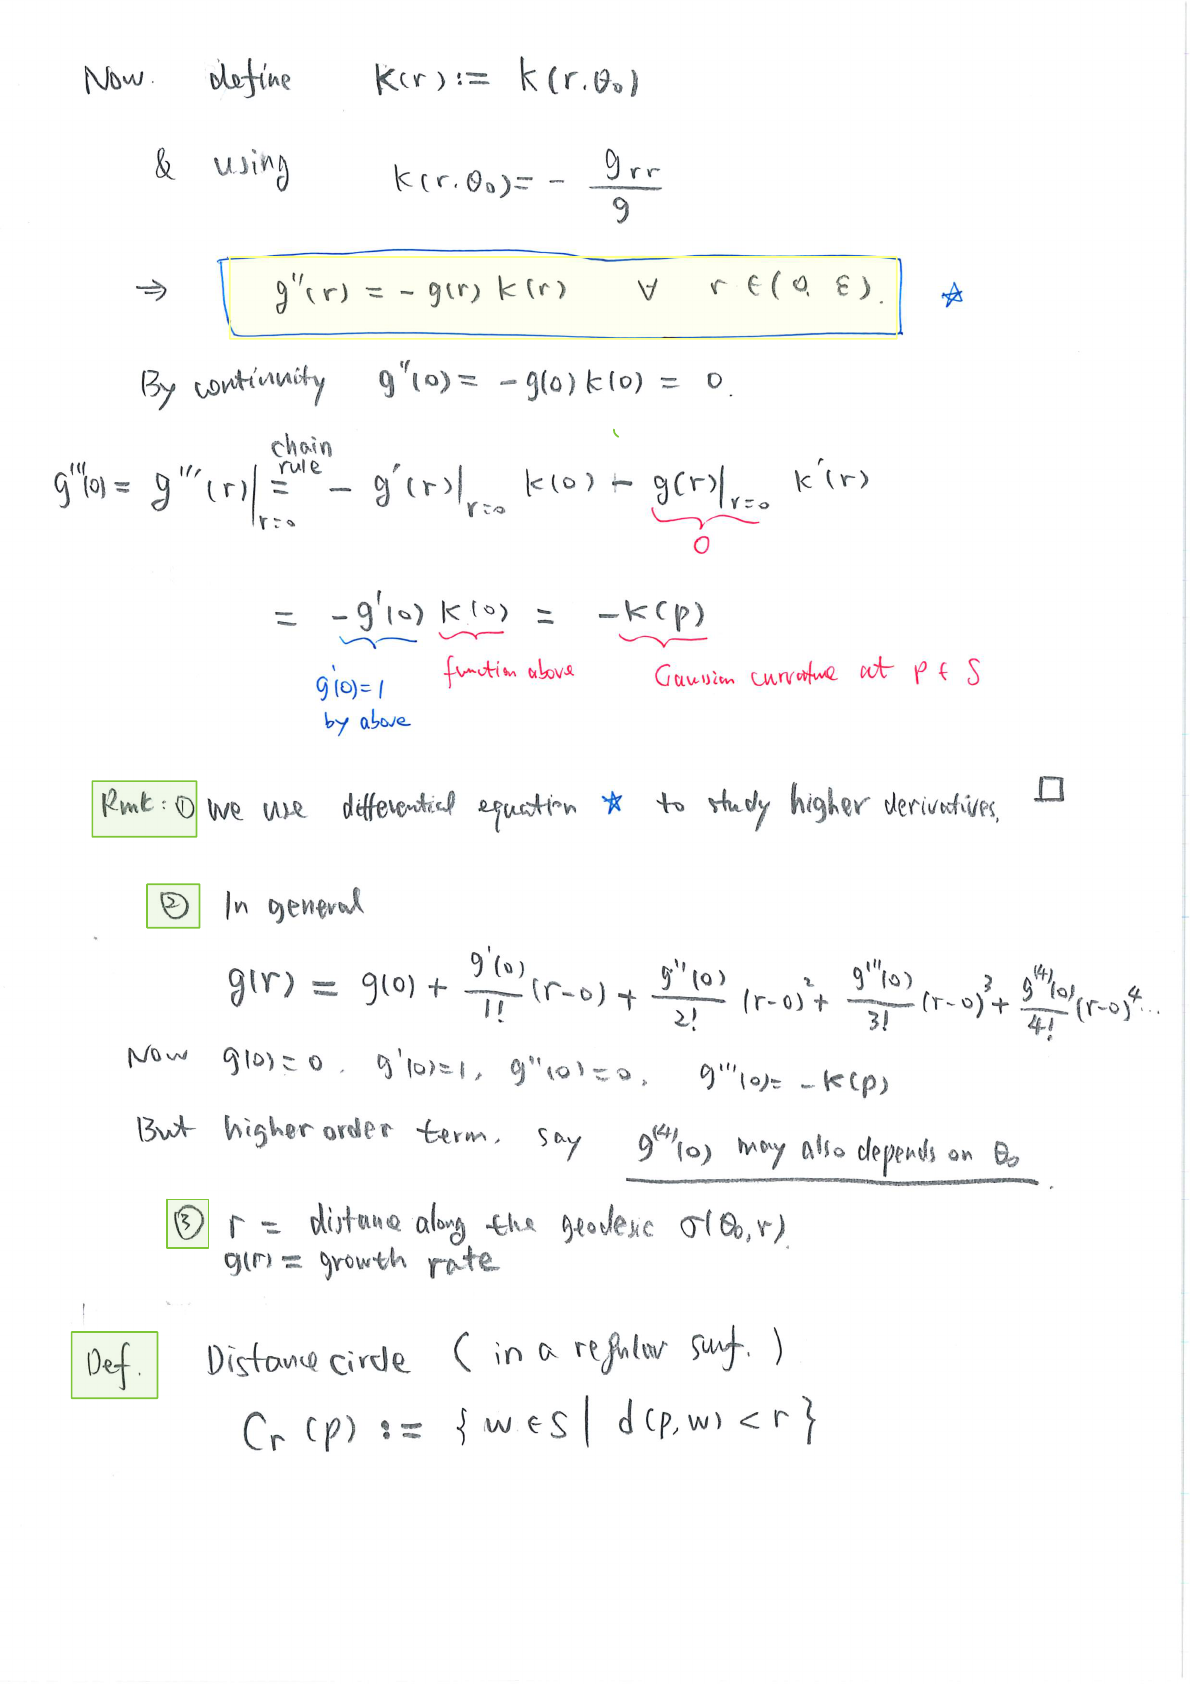 Now. define K(r) := k(r.θ₀)
& using k(r.θ₀) = - g_rr / g
⇒ g''(r) = - g(r) k(r) ∀ r ∈ (0, ε). ☆
By continuity g''(0) = - g(0) k(0) = 0.
g'''(0) = g'''(r)|_{r=0} =^{chain rule} - g'(r)|_{r=0} k(0) - g(r)|_{r=0} k'(r)
0
= -g'(0) k(0) = -k(p)
g'(0)=1 by above
function above
Gaussian curvature at p ∈ S
Rmk: ① we use differential equation ☆ to study higher derivatives. □
② In general
g(r) = g(0) + g'(0)/1! (r-0) + g''(0)/2! (r-0)² + g'''(0)/3! (r-0)³ + g⁽⁴⁾(0)/4! (r-0)⁴...
Now g(0)=0. g'(0)=1, g''(0)=0, g'''(0)= -k(p)
But higher order term. say g⁽⁴⁾(0) may also depends on θ₀.
③ r = distane along the geodesic σ(θ₀,r).
g(r) = growth rate
Def. Distance circle ( in a regular surf. )
C_r (p) := { w ∈ S | d(p,w) < r }